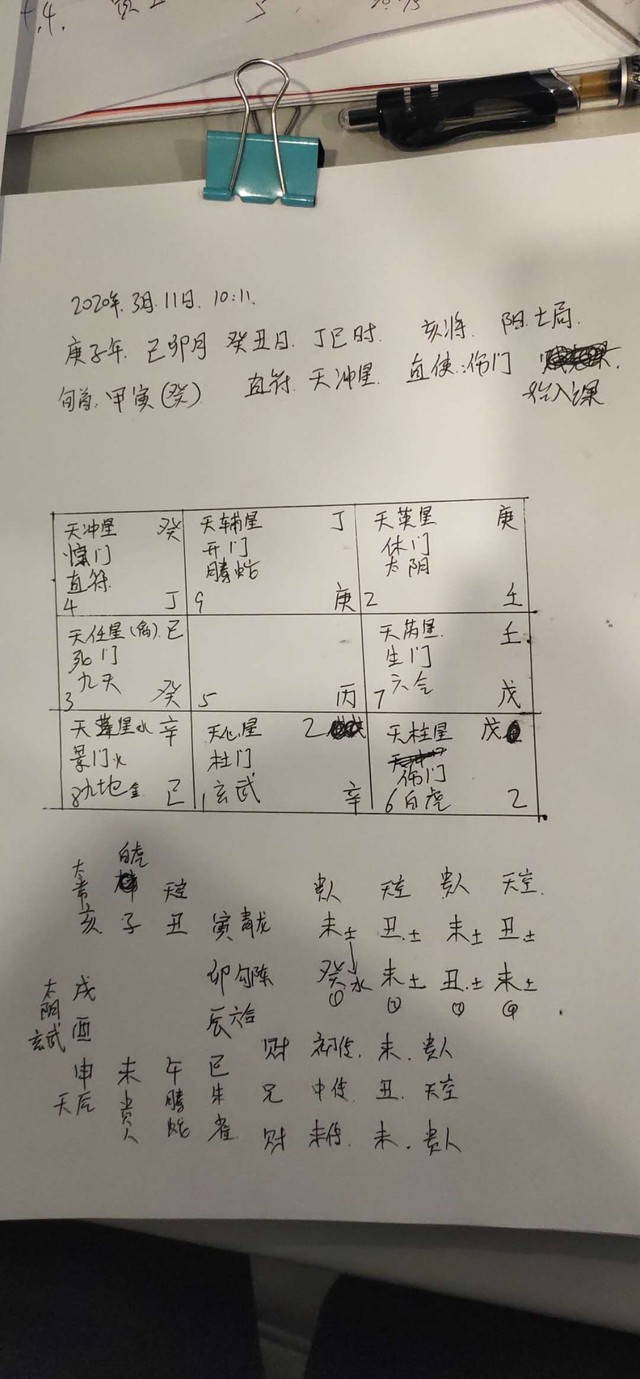 2020年.3月.11日.10:11.
庚子年.己卯月 癸丑日.丁巳时. 亥将. 阴七局.
旬首.甲寅(癸) 直符.天冲星 直使:伤门
天冲星 癸 天辅星 丁 天英星 庚
惊门 开门 休门
直符 腾蛇 太阴
4 丁 9 庚 2 壬
天任星 己 天芮星 壬
死门 生门
九天 六合
3 癸 5 丙 7 戊
天蓬星水 辛 天心星 乙 天柱星 戊
景门火 杜门 伤门
8九地金 己 1玄武 辛 6白虎 乙
白虎
太常 天空 贵人 天空 贵人 天空.
亥 子 丑 寅 青龙 未土 丑.土 未土 丑土
太阴 戌 卯 勾陈 癸水 未土 丑.土 未土
① ② ③ ④
玄武 酉 辰 六合
财 初传.未.贵人
申 未 午 巳
天后 贵人 腾蛇 朱雀 兄 中传 丑.天空
财 末传.未.贵人